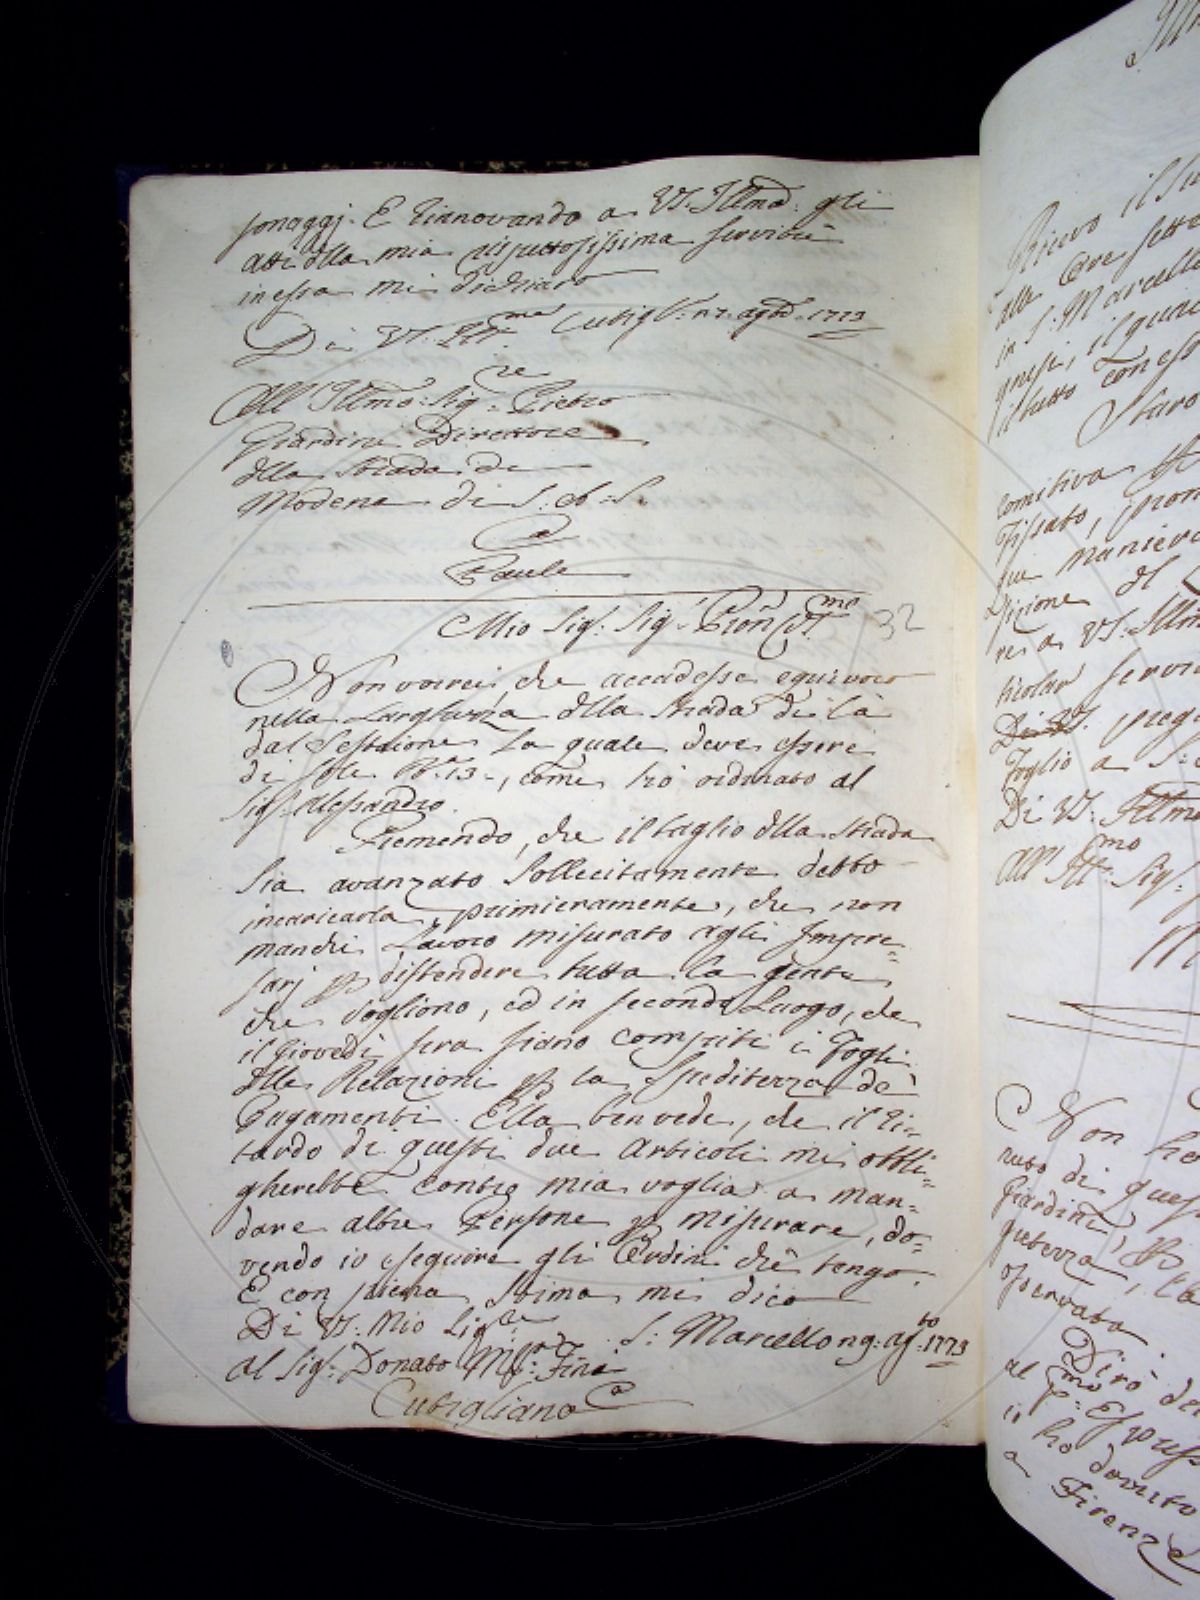 sonaggj. E rinnovando a VS. Illmã. gli
atti della mia rispettosissima servitù
in essa mi dichiaro
Di VS. Ill.ma Cutigl.
All' Illmo: Sig.re Pietro
Giardini Direttore
della Strada di
Modena di S. A. S.
a
Paule
Mio Sig. Sig. Proñ
32
Non vorrei, che accadesse equivoco
nella Larghezza della Strada di là
dal Sestaione la quale deve essere
di sole B.a 13, come hò ordinato al
Sig. Alessandro.
Premendo, che il taglio della Strada
sia avanzato sollecitamente debbo
incaricarla, primieramente, che non
manchi Lavoro misurato agli Impre=
sarj p distendere tutta la gente
che vogliono, ed in secondo Luogo, che
il Giovedì sera siano compiti i Fogli
delle Relazioni p la speditezza de'
Pagamenti. Ella ben vede, che il ri=
tardo di questi due Articoli mi obbli=
gherebbe contro mia voglia a man=
dare altre Persone p misurare, do=
vendo io eseguire gli Ordini che tengo.
E con piena stima mi dico
Di VS. Mio Sig.re
S. Marcello ag.to 1773
al Sig. Donato Fini
Cutigliano
Ricevo il
alle Ore sette
in S. Marcello
il tutto con
Staro
comitiva
fissato,
que maniera
dizione del
re a VS. Illm
ticolar servi
Di VS. preg
Foglio a
Di VS. Illm
All' Ill.mo Sig.
M
Non ho
nuto di ques
Giardini,
osservata.
Dirò
al P.mo Espress
io ho dovuto
a Firenze